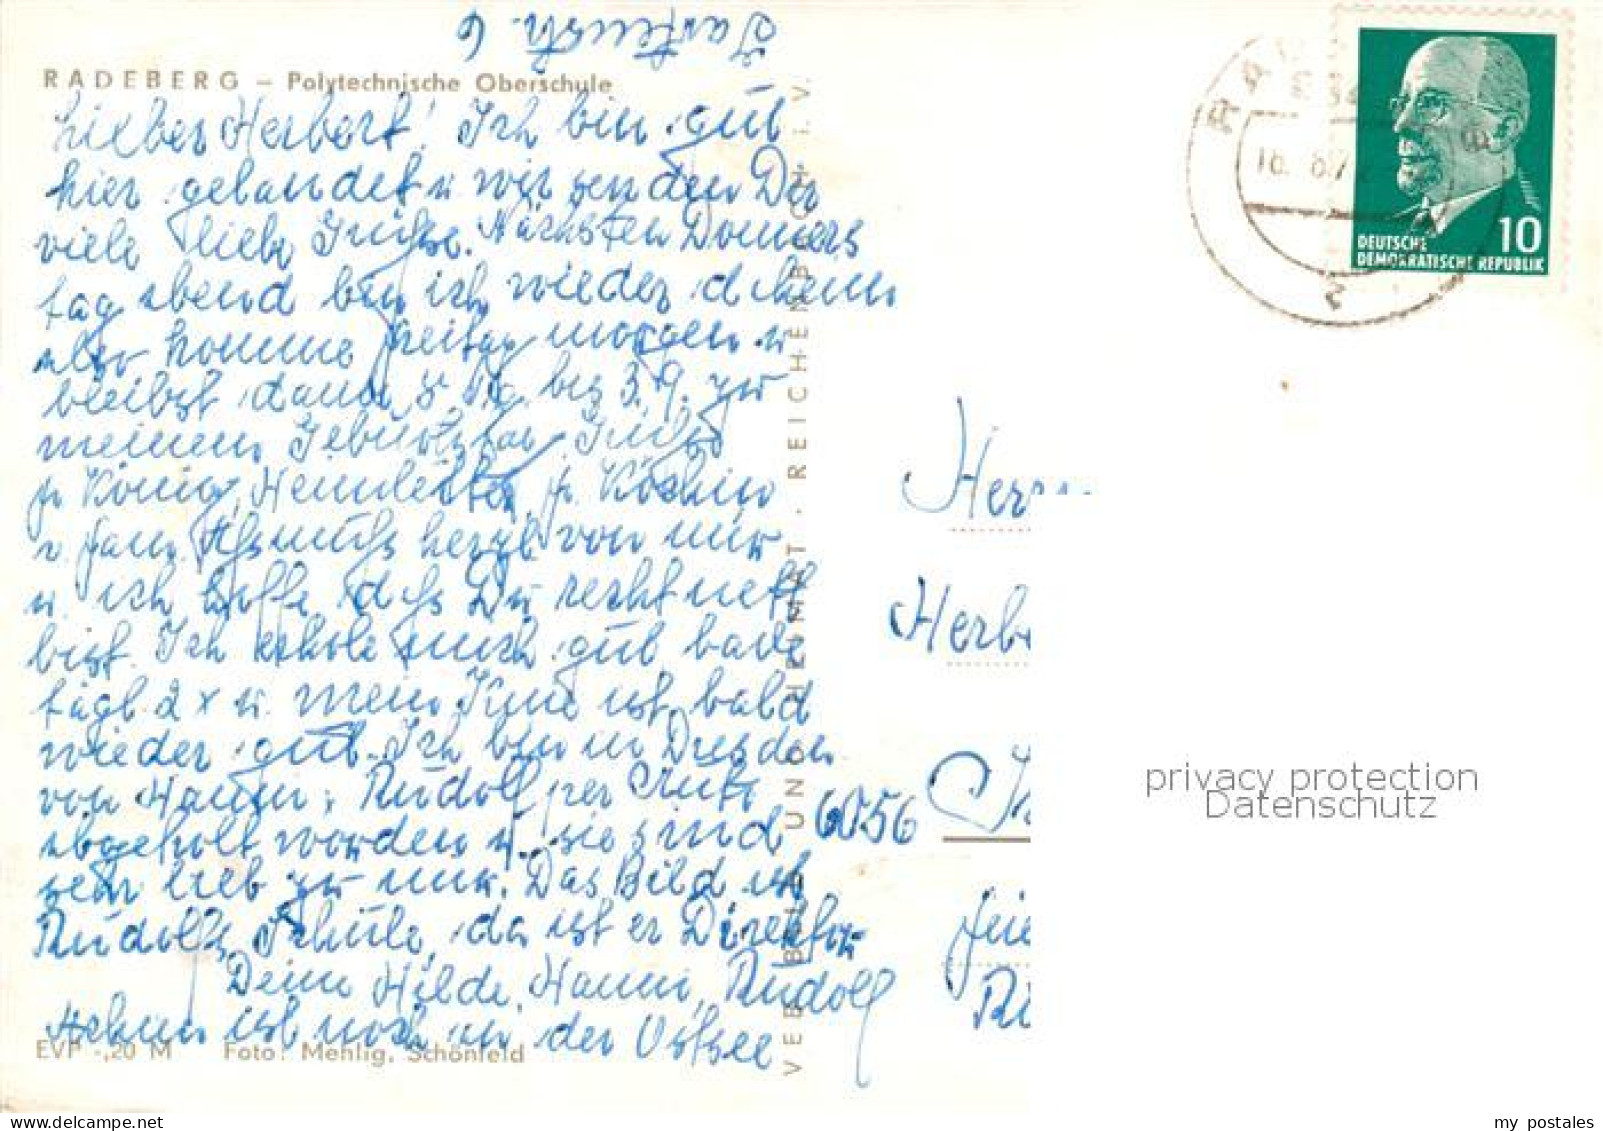 Gartenstr. 6
RADEBERG – Polytechnische Oberschule
Lieber Herbert! Ich bin gut
hier gelandet u wir senden Dir
viele liebe Grüsse. Nächsten Donners
tag abend bin ich wieder daheim
also komme Freitag morgen u
bleibst dann bis 3.9. zu
meinem Geburtstag. Grüsse
Fr König, Heimleiter, Fr.
u. Fam. herzl von mir
u. ich hoffe, dass Du recht nett
bist. Ich erhole mich gut bade
tägl. 2x u. mein Knie ist bald
wieder gut. Ich bin in Dresden
von Hanni, Rudolf per Auto
abgeholt worden u. sie sind
sehr lieb zu mir. Das Bild ist
Rudolfs Schule, da ist er Direktor
Deine Hilde, Hanni, Rudolf
ist noch an der Ostsee
EVP -,20 M Foto: Mehlig, Schönfeld
VEB BILD UND HEIMAT · REICHENBACH I. V.
16. 8.7
2
10
DEUTSCHE
DEMOKRATISCHE REPUBLIK
Herrn
Herbe
6056
privacy protection
Datenschutz
my postales